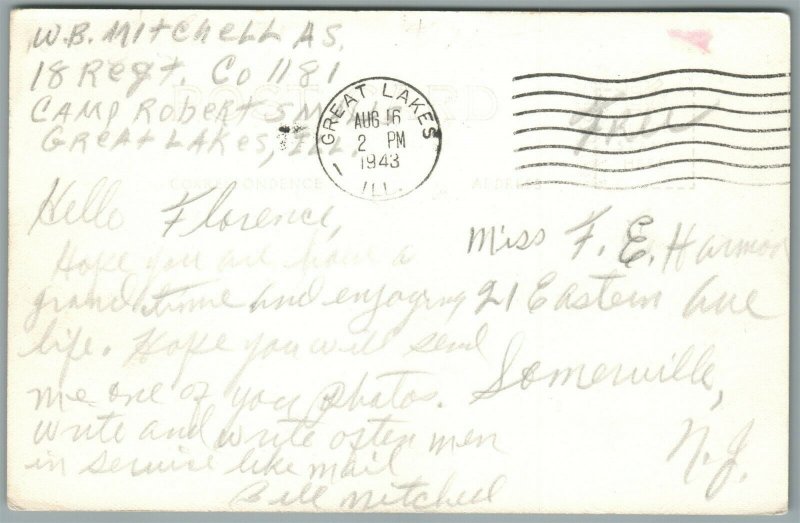 W.B. Mitchell A S.
18 Regt. Co 1181
Camp Robert Smalls
Great Lakes, Ill.
POST CARD
GREAT LAKES
AUG 16
2 PM
1943
ILL.
Free
CORRESPONDENCE
ADDRESS
Hello Florence,
Hope you are have a
grand time and enjoying
life. Hope you will send
me one of your photos.
write and write often men
in service like mail
Bill Mitchell
Miss F. E. Harmon
21 Eastern Ave
Somerville,
N.J.